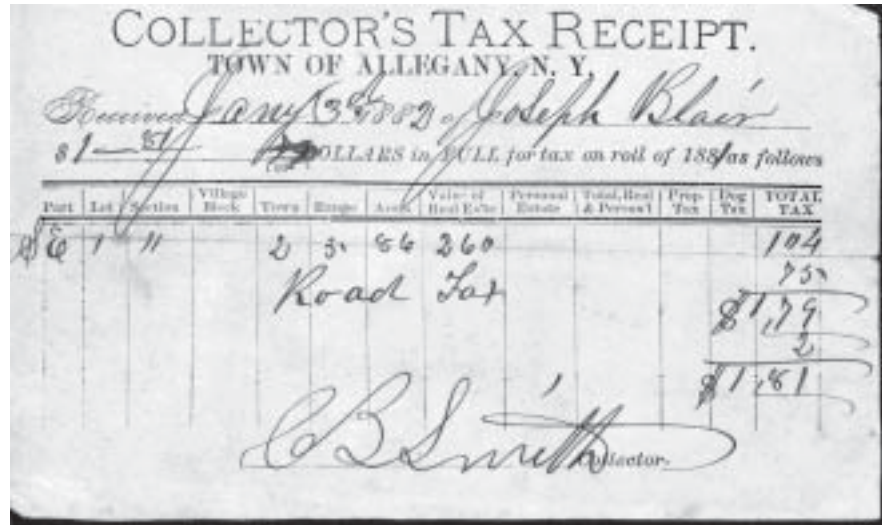 COLLECTOR'S TAX RECEIPT.
TOWN OF ALLEGANY, N. Y.
Received Jany 3d 1882 of Joseph Blair
$1—81 DOLLARS in FULL for tax on roll of 1881 as follows
Part Lot Section Village Block Town Range Acres Value of Real Est'e Personal Estate Total, Real & Person'l Prop. Tax Dog Tax TOTAL TAX
SE 1 11 2 5 86 260 104
Road Tax 75
$1,79
2
$1,81
C B Smith Collector.